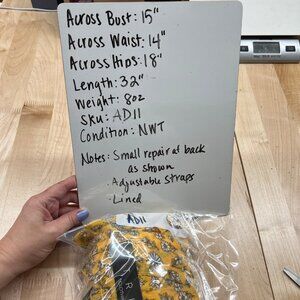 Across Bust: 15"
Across Waist: 14"
Across Hips: 18"
Length: 32"
Weight: 8oz
SKU: AD11
Condition: NWT
Notes: Small repair at back
as shown
· Adjustable Straps
· Lined
AD11
R